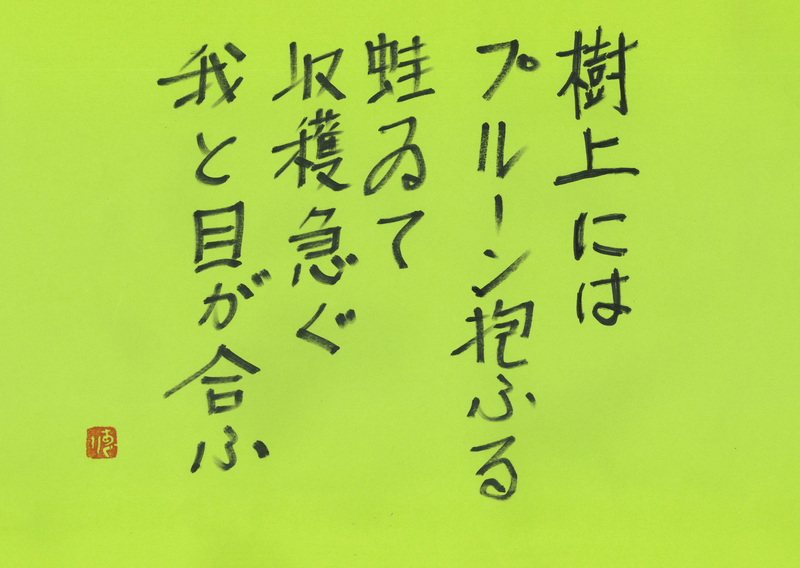 樹上には
プルーン抱ふる
蛙ゐて
収穫急ぐ
我と目が合ふ